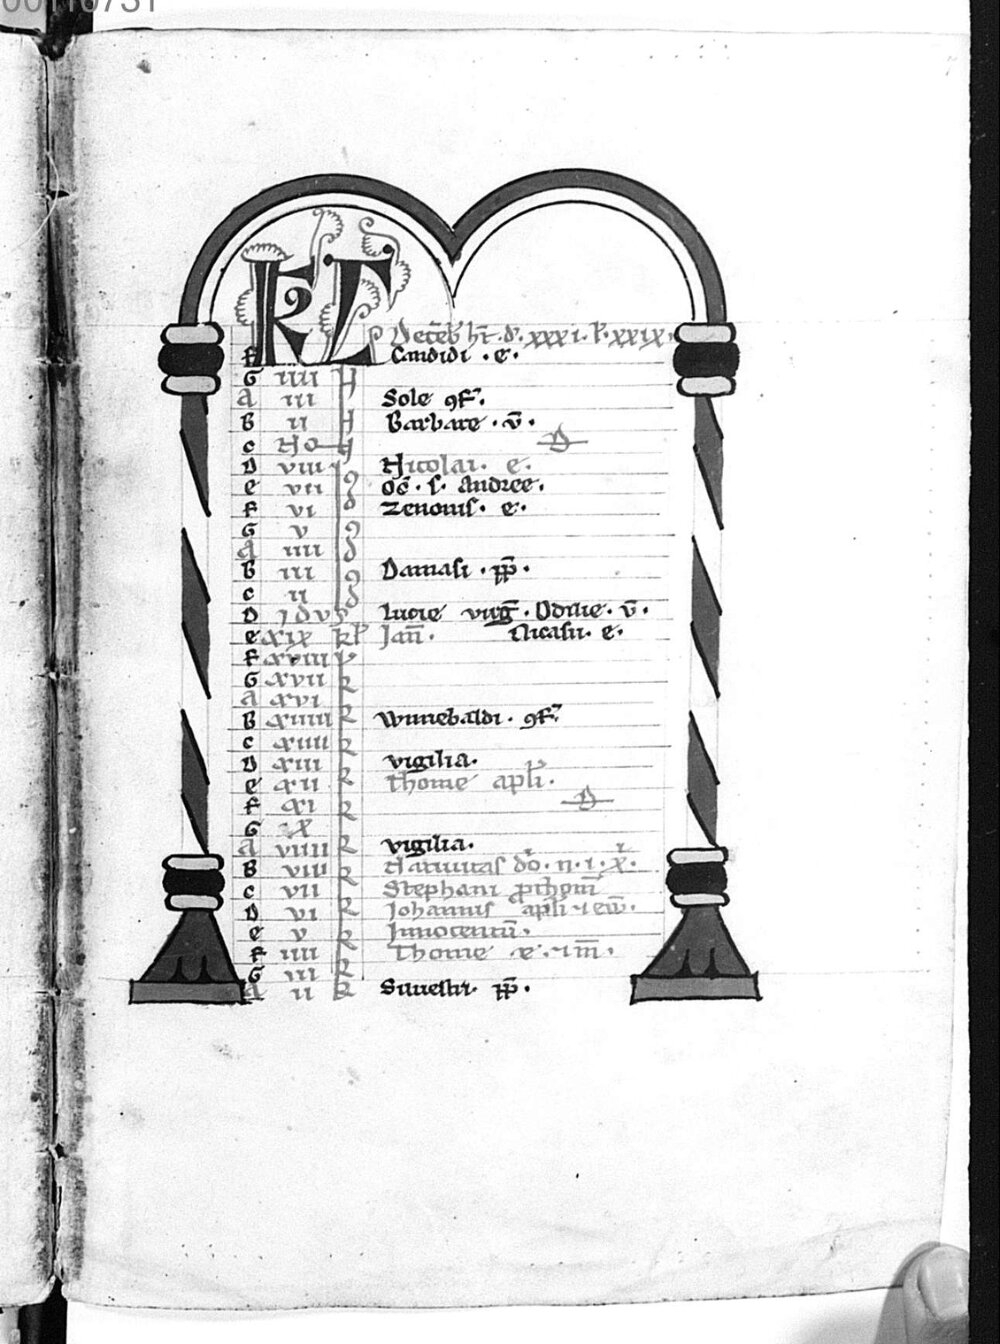 00110731
KL Decēb' hr̄ .d'. xxxi . l'. xxix.
F Candidi . e.
G iiii N
A iii Sole 9f.
B ii N Barbare . v̄.
C No N D
D viii Nicolai . e.
e vii Oc̄ . s. Andree.
F vi Zenonis . e.
G v
A iiii
B iii Damasi . pp̄.
C ii
D idus Lucie virḡ . Odilie . v̄.
e xix kl' Jan̄. Nicasii . e.
F xviii k
G xvii k
A xvi
B xviiii k Wunebaldi . 9f.
C xiiii k
D xiii k vigilia.
e xii k Thome apl'i.
F xi k D
G x
A viiii k vigilia.
B viii k Natiuitas do . n . i . x.
C vii k Stephani ꝓthom̄
D vi k Johannis apl'i 7 ew̄.
e v k Innocentum̄.
F iiii k Thome . e . 7 m̄.
G iii k
A ii k Siluestri . pp̄.